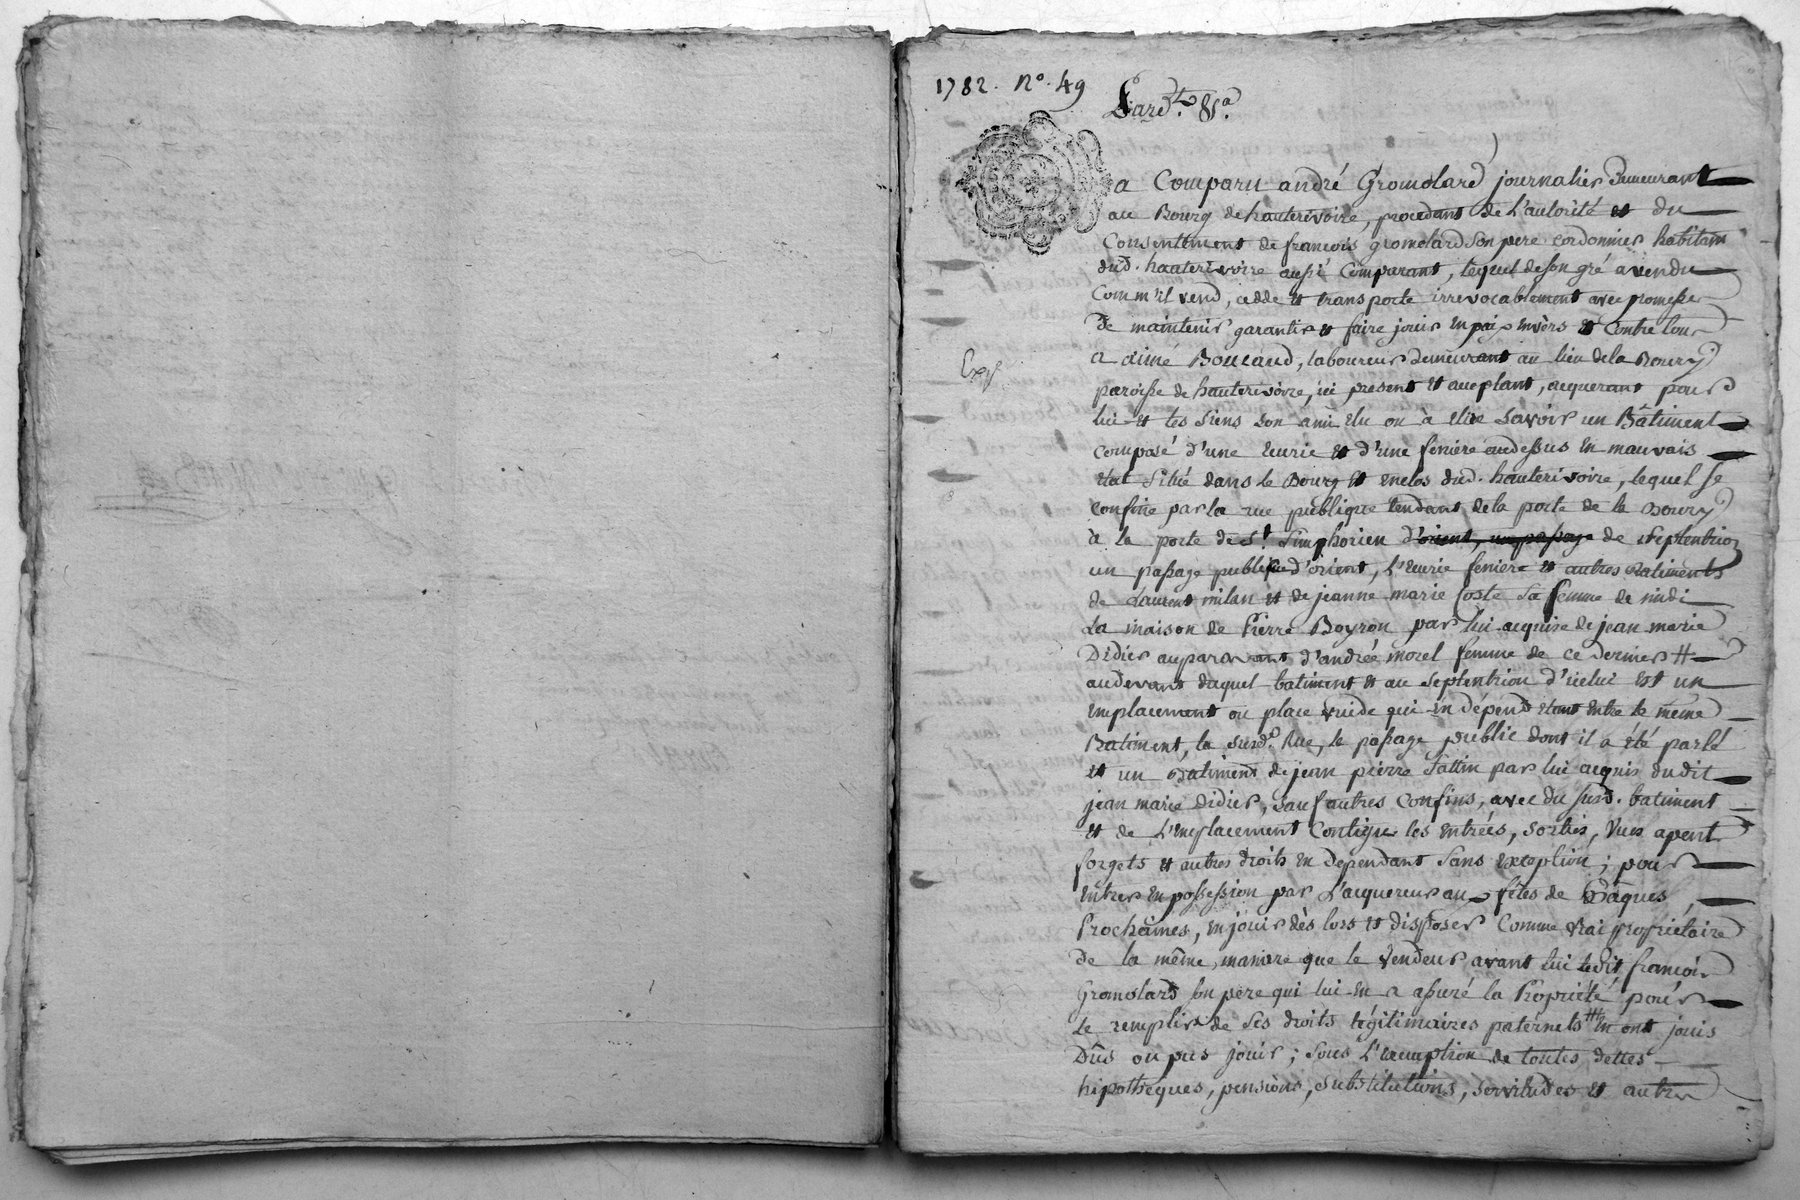 1782. N.º 49
Pard.t &.a
a Comparu andré Gromolard journalier Demeurant
au Bourg de hauterivoire, procedant de L'autorité et du
Consentement de francois gromolard son pere cordonnier habitant
dud. hauterivoire aussi Comparant, lequel de son gré a vendu
Comm'il vend, cedde et transporte irrevocablement avec promesse
De maintenir garantir et faire jouir en paix envers et Contre tous
a aimé Boucaud, laboureur demeurant au lieu de la Boury
paroisse de hauterivoire, ici present et acceptant, acquerant pour
lui et les siens son ami elu ou à elire savoir un Bâtiment
composé d'une eurie et d'une feniere audessus en mauvais
etat situé dans le Bourg et enclos dud. hauterivoire, lequel se
confine par la rue publique tendant de la porte de la Boury
à la porte de St. Simphorien d'orient, un passage de septentrion
un passage public d'orient, L'eurie feniere et autres Batiments
de Laurent milan et de jeanne marie Coste sa femme de midi
La maison de Pierre Boyron par lui acquise de jean marie
Didier auparavant d'andrée morel femme de ce dernier #
audevant duquel batiment et au septentrion d'icelui est un
emplacement ou place vuide qui en dépend etant entre le même
Batiment, la susd.e Rue, le passage public dont il a été parlé
et un Batiment de jean pierre Fattin par lui acquis dudit
jean marie Didier, sauf autres confins, avec du susd. batiment
et de L'emplacement Contigu les entrées, sorties, vues apent
forgets et autres droits en dependant sans exception; pour
entrer en possession par L'acquereur aux fêtes de Pâques
Prochaines, en jouir dès lors et disposer Comme vrai proprietaire
De la même maniere que le vendeur avant lui ledit francois
Gromolard son pere qui lui en a assuré la Propriété pour
le remplir de ses droits legitimaires paternels ## en ont joui
Dûs ou pus jouir; sous L'exemption de toutes dettes
hipothèques, pensions, substitutions, servitudes et autres